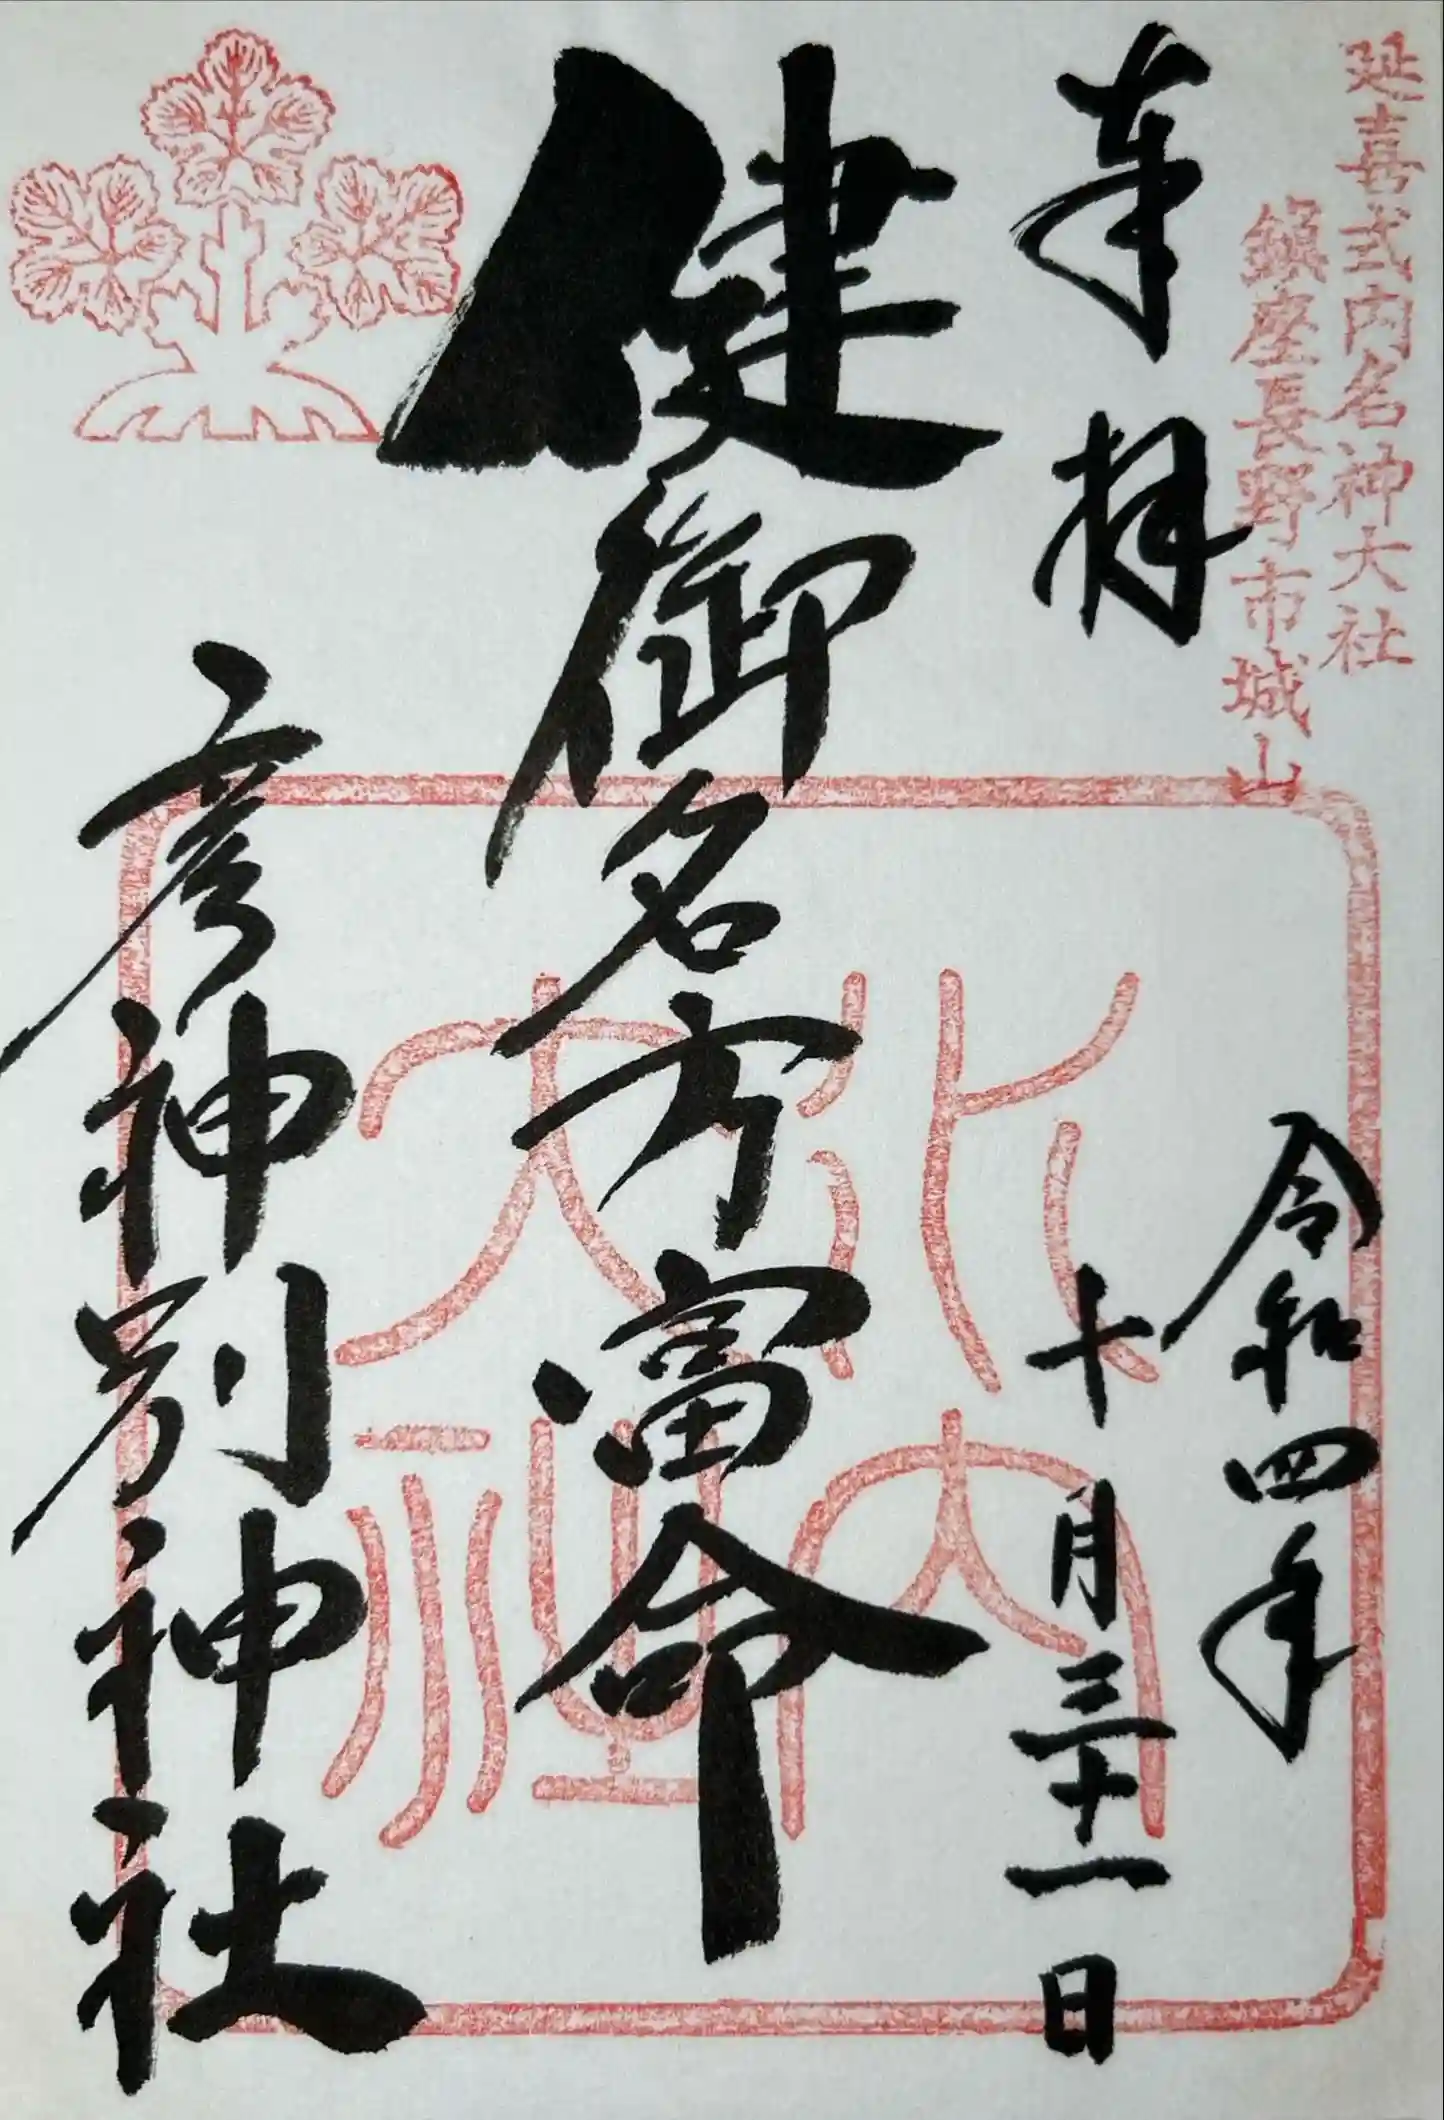 延喜式内名神大社
鎮座長野市城山
奉拝
令和四年
十月三十一日
健御名方富命
彦神別神社
式内
大神